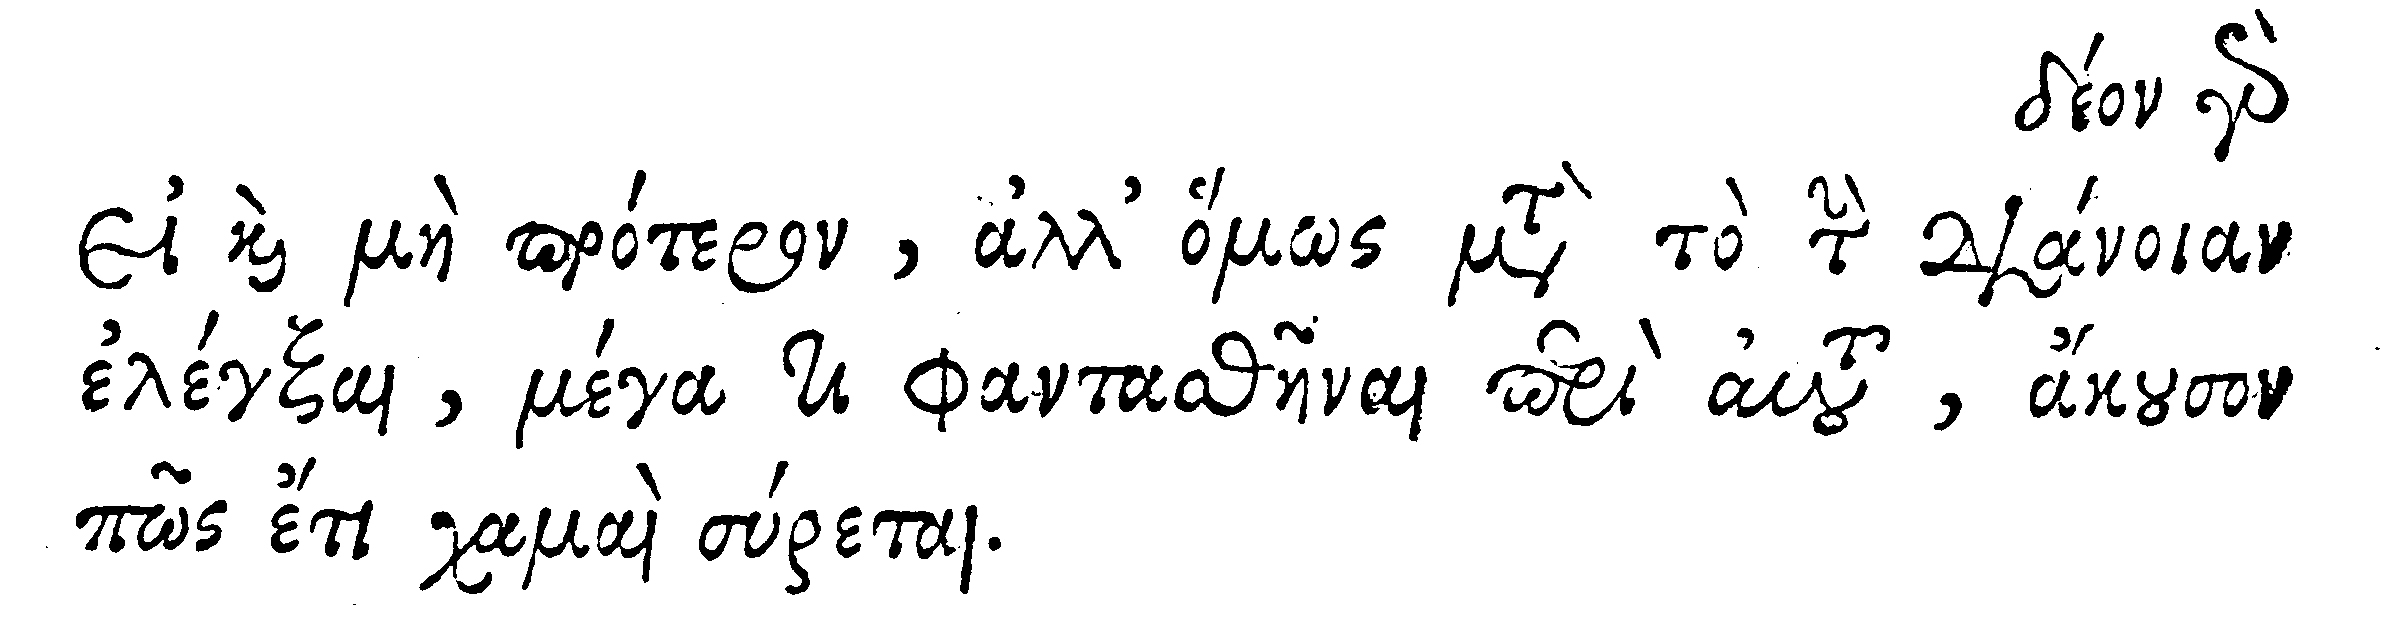 δέον γὰρ
εἰ καὶ μὴ πρότερον, ἀλλ' ὅμως μετὰ τὸ τὴν διάνοιαν
ἐλέγξαι, μέγα τι φαντασθῆναι περὶ αὐτοῦ, ἄκουσον
πῶς ἔτι χαμαὶ σύρεται.